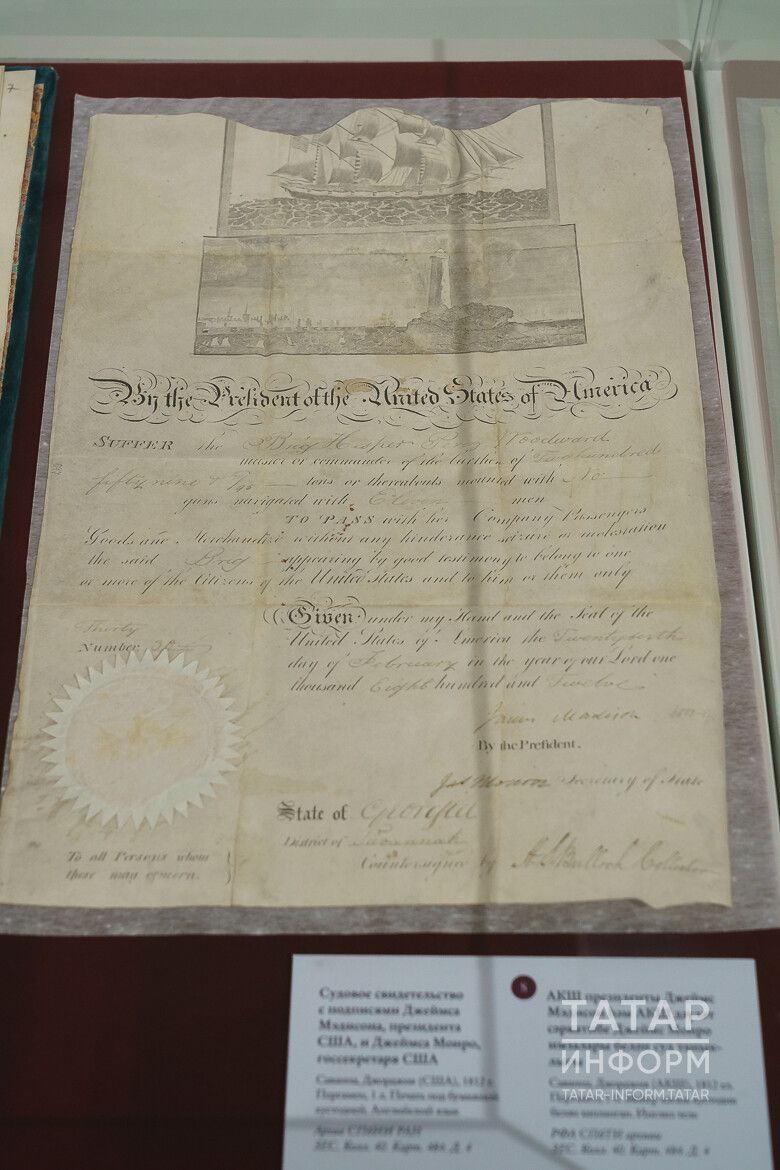 7
By the President of the United States of America
SUFFER the Brig Hesper Woodward
master or commander of the burthen of Two hundred
fifty nine & /95 tons or thereabouts mounted with No
guns navigated with Eleven men
TO PASS with her Company Passengers
Goods and Merchandize without any hinderance seizure or molestation
the said Brig appearing by good testimony to belong to one
or more of the Citizens of the United States and to him or them only
Given under my Hand and the Seal of the
United States of America the
day of February in the year of our Lord one
thousand Eight hundred and Twelve
Thirty
Number
James Madison
By the President.
Jas Monroe Secretary of State
State of Georgia
District of Savannah
Countersigned by A. S. Bulloch Collector
To all Persons whom
these may concern.
Судовое свидетельство
с подписями Джеймса
Мэдисона, президента
США, и Джеймса Монро,
госсекретаря США
Саванна, Джорджия (США), 1812 г.
Пергамен, 1 л. Печать под бумажной
кустодией. Английский язык
Архив СПбИИ РАН
ЗЕС. Колл. 40. Карт. 484. Д. 4
8
АКШ президенты Джеймс
Саванна, Джорджия (АКШ), 1812 ел.
ЗЕС. Колл. 40. Карт. 484. Д. 4
ТАТАР
ИНФОРМ
TATAR-INFORM.TATAR